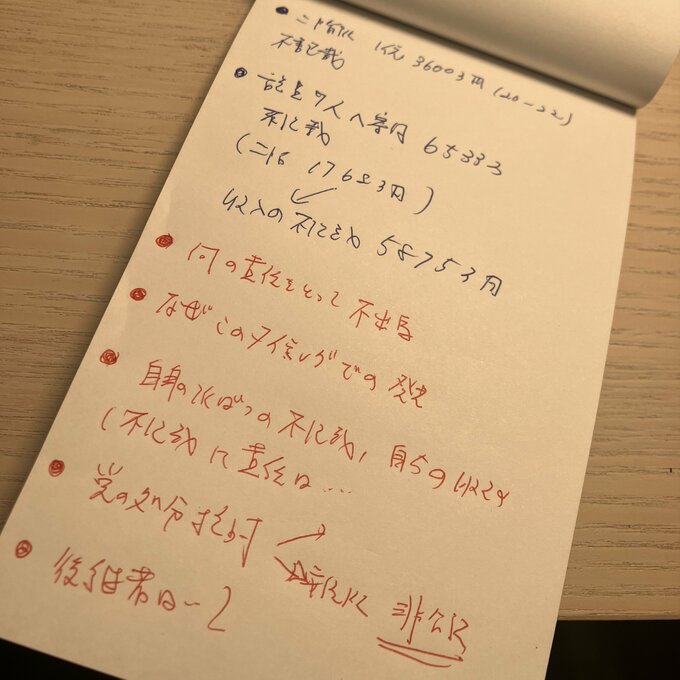 • 二階派 1億3600万円(20-22)
不記載
• 議員7人へ寄付 6533万
不記載
(二階 1768万円)
収入の不記載 5875万円
• 何の責任をとって不出馬
• なぜこのタイミングでの発表
• 自身の派ばつの不記載、自らの収支の
(不記載に責任は…
• 党の処分検討
非公認
• 後継者は…